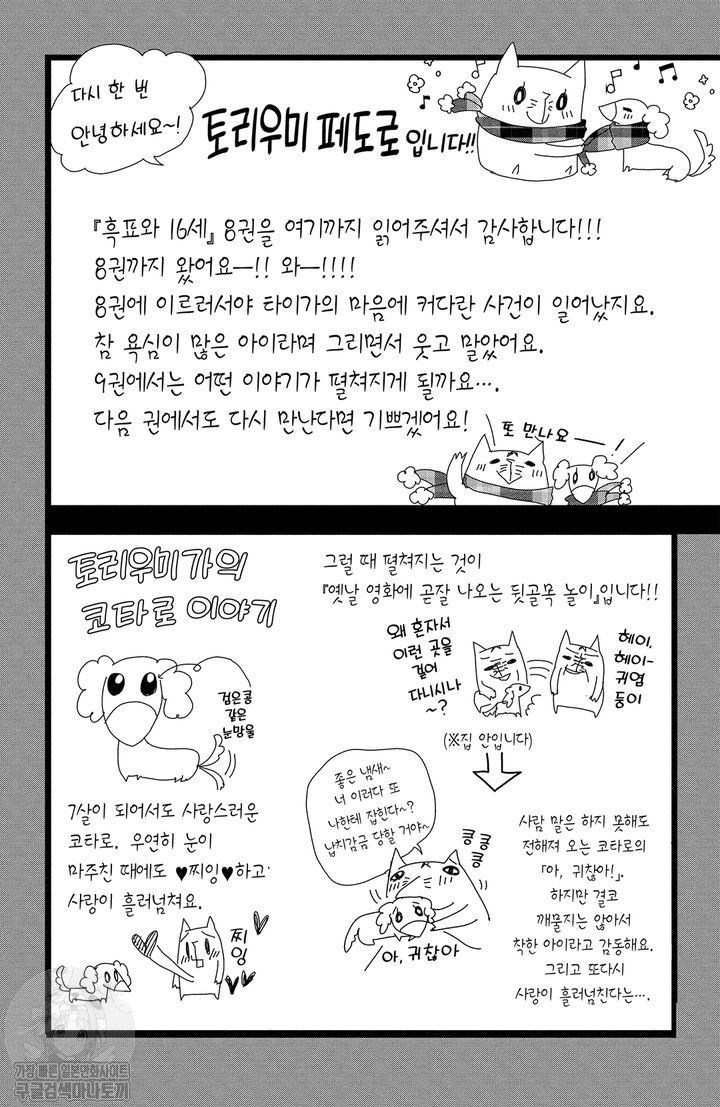 다시 한 번
안녕하세요~!
토리우미 페도로 입니다!!
『흑표와 16세』 8권을 여기까지 읽어주셔서 감사합니다!!!
8권까지 왔어요—!! 와—!!!!
8권에 이르러서야 타이가의 마음에 커다란 사건이 일어났지요.
참 욕심이 많은 아이라며 그리면서 웃고 말았어요.
9권에서는 어떤 이야기가 펼쳐지게 될까요….
다음 권에서도 다시 만난다면 기쁘겠어요!
또 만나요——!
토리우미가의
코타로 이야기
검은콩
같은
눈망울
7살이 되어서도 사랑스러운
코타로. 우연히 눈이
마주친 때에도 ♥찌잉♥하고
사랑이 흘러넘쳐요.
찌
잉
그럴 때 펼쳐지는 것이
『옛날 영화에 곧잘 나오는 뒷골목 놀이』입니다!!
왜 혼자서
이런 곳을
걸어
다니시나
~?
헤이,
헤이~
귀염
둥이
(※집 안입니다)
좋은 냄새~
너 이러다 또
나한테 잡힌다~?
납치감금 당할 거야~
킁
킁
킁
아, 귀찮아
사람 말은 하지 못해도
전해져 오는 코타로의
「아, 귀찮아!」.
하지만 결코
깨물지는 않아서
착한 아이라고 감동해요.
그리고 또다시
사랑이 흘러넘친다는….
가장 빠른 일본만화사이트
구글검색마나토끼